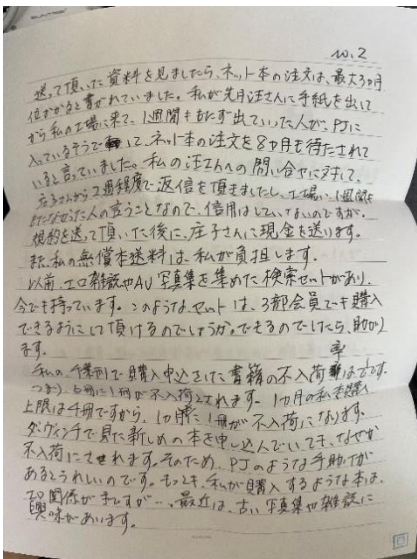 No.2
送って頂いた資料を見ましたら、ネット本の注文は、最大3ヶ月
位かかると書かれていました。私が先月汪さんに手紙を出して
から私の工場に来て、1週間もたず出ていった人が、PJに
入っているそうで て、ネット本の注文を8ヶ月も待たされて
いると言っていました。私の汪さんへの問い合せに対して、
庄子さんから2週程度で返信を頂きましたし、工場に、1週間も
もたなかった人の言うことなので、信用はしていないのですが。
規約を送って頂いた後に、庄子さんに現金を送ります。
また、私の無償本送料は、私が負担します。
以前、エロ雑誌やAV写真集を集めた検索セットがあり、
今でも持っています。このようなセットは、3部会員でも購入
できるようにして頂けるのでしょうか。できるのでしたら、助かり
ます。
私の、千葉刑で購入申込をした書籍の不入荷率は です。
つまり、 冊に1冊が不入荷とされます。1ヵ月の私本購入
上限は 冊ですから、1ヵ月に1冊が不入荷になります。
ダ・ヴィンチで見た新しめの本を申し込んでいても、なぜか
不入荷にさせれます。そのため、PJのような手助けが
あるとうれしいのです。もっとも、私が購入するような本は、
エロ関係がまですが…、最近は、古い写真集や雑誌に
興味があります。